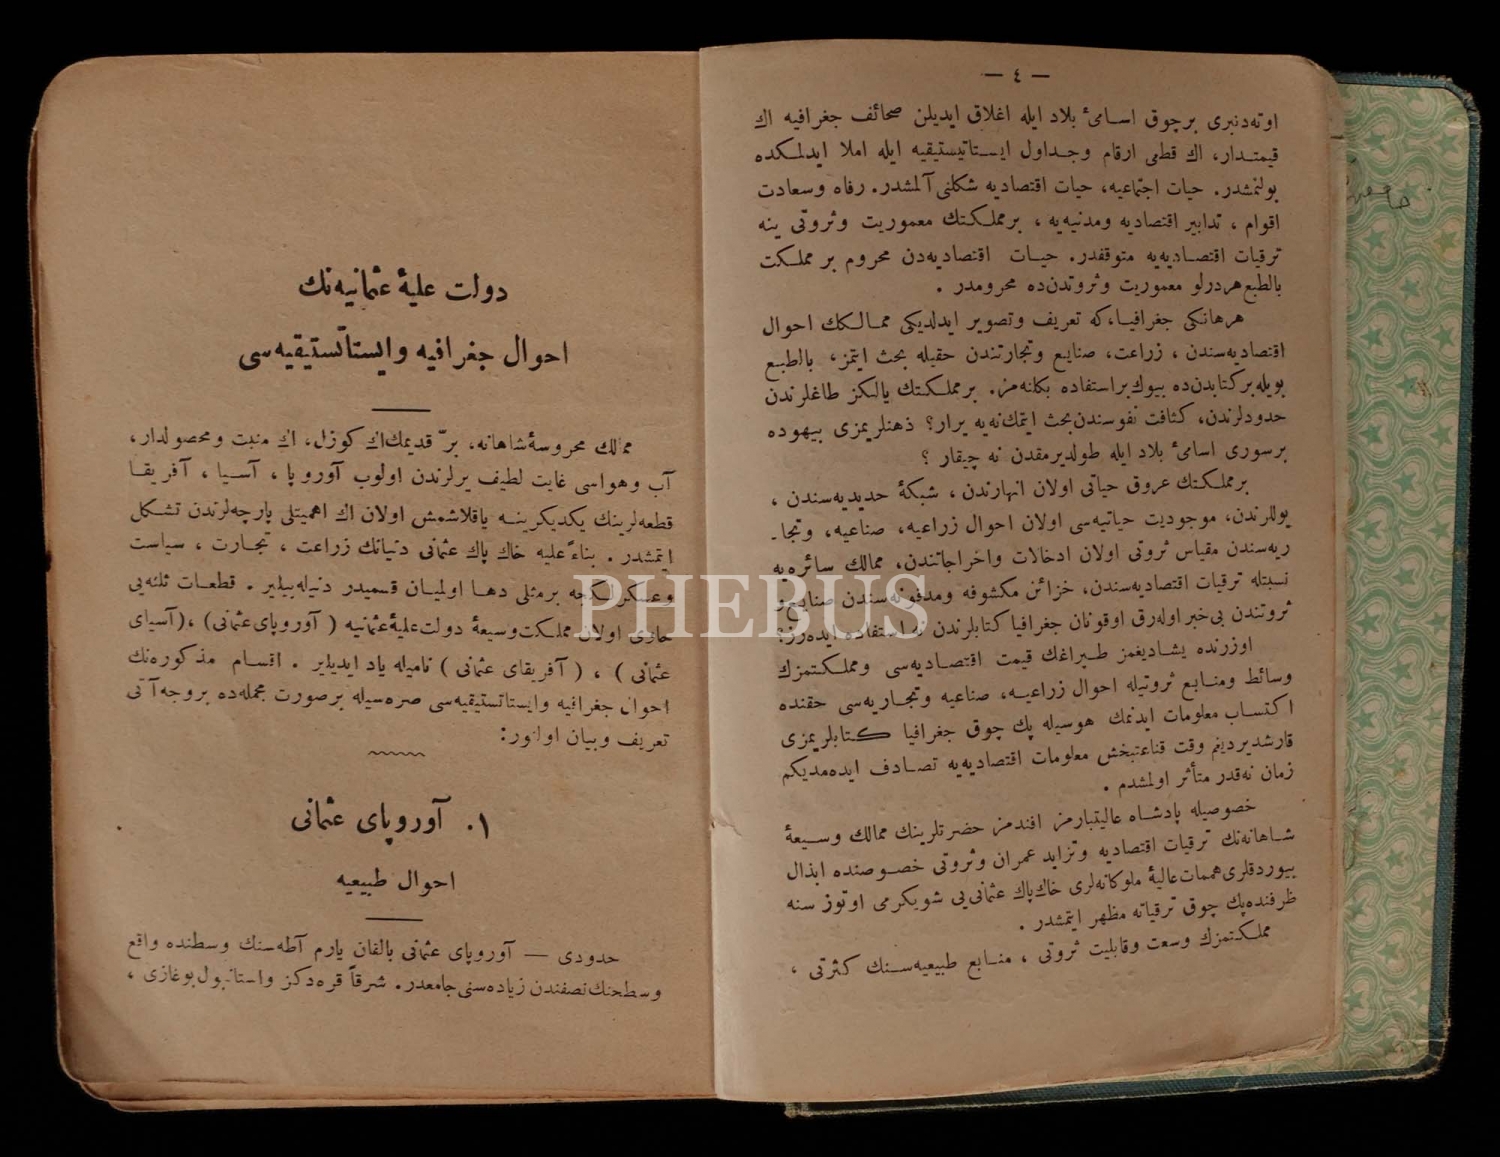 — ٤ —
اوته‌دنبری برچوق اسامئ بلاد ایله اغلاق ایدیلن صحائف جغرافیه اك
قیمتدار، اك قطعی ارقام وجداول ایستاتیستیقیه ایله املا ایدلمكده
بولنمشدر. حیات اجتماعیه، حیات اقتصادیه شكلنی آلمشدر. رفاه وسعادت
اقوام ، تدابیر اقتصادیه ومدنیه‌یه ، برمملكتك معموریت وثروتی ینه
ترقیات اقتصادیه‌یه متوقفدر. حیات اقتصادیه‌دن محروم بر مملكت
بالطبع هردرلو معموریت وثروتدن‌ده محرومدر .
هرهانكی جغرافیا،كه تعریف وتصویر ایدلدیكی ممالكك احوال
اقتصادیه‌سندن ، زراعت، صنایع وتجارتندن حقیله بحث ایتمز، بالطبع
بویله بركتابدن‌ده بیوك براستفاده بكلنه‌مز. برمملكتك یالكز طاغلرندن
حدودلرندن، كثافت نفوسندن بحث ایتمك نه‌یه یرار؟ ذهنلریمزی بیهوده
برسوری اسامئ بلاد ایله طولدیرمقدن نه چیقار ؟
برمملكتك عروق حیاتی اولان انهارندن ، شبكۀ حدیدیه‌سندن ،
یوللرندن، موجودیت حیاتیه‌سی اولان احوال زراعیه، صناعیه، وتجا-
ریه‌سندن مقیاس ثروتی اولان ادخالات واخراجاتندن، ممالك سائره‌یه
نسبتله ترقیات اقتصادیه‌سندن، خزائن مكشوفه ومدفونه‌سندن صنایع و
ثروتندن بی‌خبر اوله‌رق اوقونان جغرافیا كتابلرندن نه استفاده ایده‌رز؟
اوزرنده یشادیغمز طپراغك قیمت اقتصادیه‌سی ومملكتمزك
وسائط ومنابع ثروتیله احوال زراعیه، صناعیه وتجاریه‌سی حقنده
اكتساب معلومات ایدنمك هوسیله پك چوق جغرافیا كتابلریمزی
قارشدیردیغم وقت قناعتبخش معلومات اقتصادیه‌یه تصادف ایده‌مدیكم
زمان نه‌قدر متأثر اولمشدم .
خصوصیله پادشاه عالیتبارمز افندمز حضرتلرینك ممالك وسیعۀ
شاهانه‌نك ترقیات اقتصادیه وتزاید عمران وثروتی خصوصنده ابذال
بیوردقلری همات عالیۀ ملوكانه‌لری خاك پاك عثمانی‌یی شویكرمی اوتوز سنه
ظرفنده پك چوق ترقیاته مظهر ایتمشدر .
مملكتمزك وسعت وقابلیت ثروتی ، منابع طبیعیه‌سنك كثرتی ،
دولت علیۀ عثمانیه‌نك
احوال جغرافیه وایستاتستیقیه‌سی
ممالك محروسۀ شاهانه، بر قدیمك اك كوزل، اك منبت ومحصولدار،
آب وهواسی غایت لطیف یرلرندن اولوب آوروپا ، آسیا ، آفریقا
قطعه‌لرینك یكدیكرینه یاقلاشمش اولان اك اهمیتلی پارچه‌لرندن تشكل
ایتمشدر . بناءً علیه خاك پاك عثمانی دنیانك زراعت ، تجارت ، سیاست
وعسكرلكجه برمثلی دها اولمیان قسمیدر دنیله‌بیلیر . قطعات ثلثه‌یی
حاوی اولان مملكت وسیعۀ دولت علیۀ عثمانیه ( آوروپای عثمانی) ،(آسیای
عثمانی ) ، ( آفریقای عثمانی ) نامیله یاد ایدیلیر . اقسام مذكوره‌نك
احوال جغرافیه وایستاتستیقیه‌سی صره‌سیله برصورت مجمله‌ده بروجه‌آتی
تعریف وبیان اولنور:
١. آوروپای عثمانی
احوال طبیعیه
حدودی — آوروپای عثمانی بالقان یارم آطه‌سنك وسطنده واقع
وسطحنك نصفندن زیاده‌سنی جامعدر. شرقاً قره‌دكز واستانبول بوغازی ،
PHEBUS